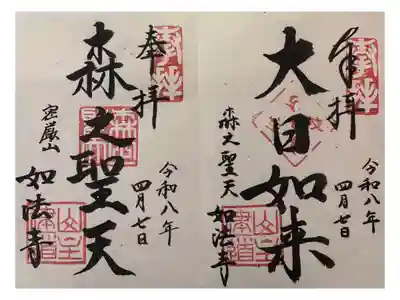 奉拝
大日如来
森之聖天
如法寺
令和八年
四月七日
奉拝
森之聖天
密厳山
如法寺
令和八年
四月七日